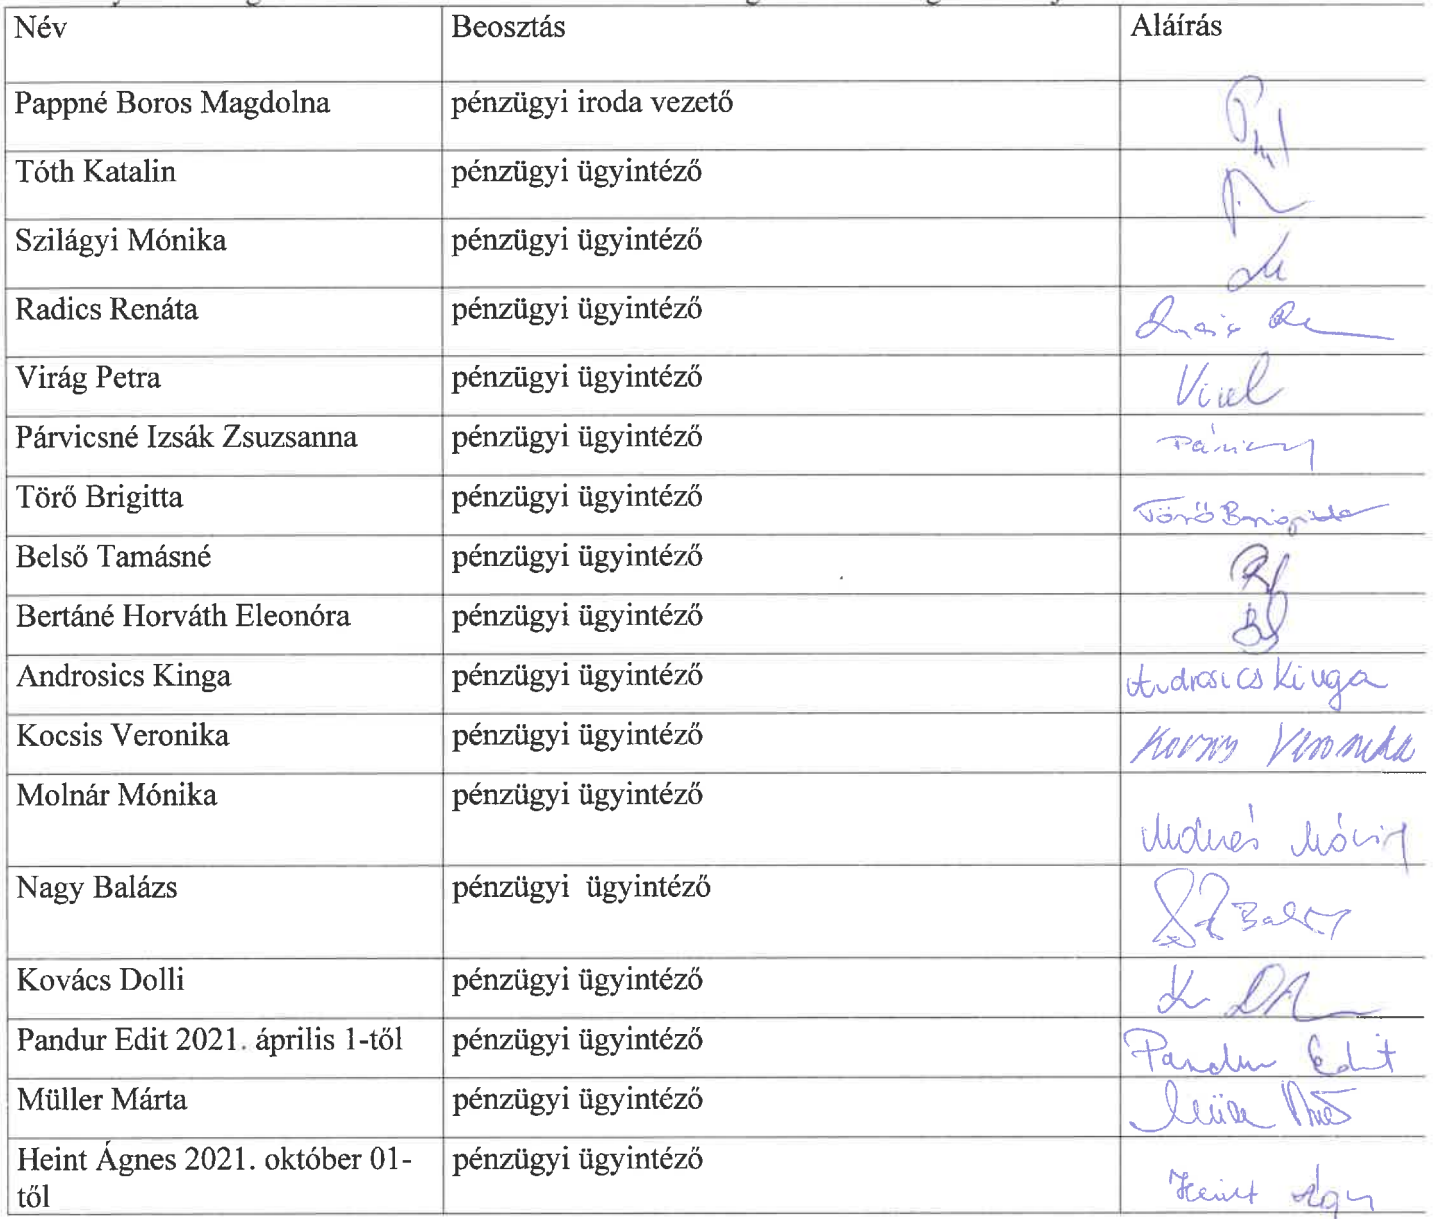 Név Beosztás Aláírás
Pappné Boros Magdolna pénzügyi iroda vezető
Tóth Katalin pénzügyi ügyintéző
Szilágyi Mónika pénzügyi ügyintéző
Radics Renáta pénzügyi ügyintéző
Virág Petra pénzügyi ügyintéző
Párvicsné Izsák Zsuzsanna pénzügyi ügyintéző
Törő Brigitta pénzügyi ügyintéző Törő Brigitta
Belső Tamásné pénzügyi ügyintéző
Bertáné Horváth Eleonóra pénzügyi ügyintéző
Androsics Kinga pénzügyi ügyintéző Androsics Kinga
Kocsis Veronika pénzügyi ügyintéző Kocsis Veronika
Molnár Mónika pénzügyi ügyintéző
Nagy Balázs pénzügyi ügyintéző
Kovács Dolli pénzügyi ügyintéző
Pandur Edit 2021. április 1-től pénzügyi ügyintéző Pandur Edit
Müller Márta pénzügyi ügyintéző
Heint Ágnes 2021. október 01- pénzügyi ügyintéző Heint
től